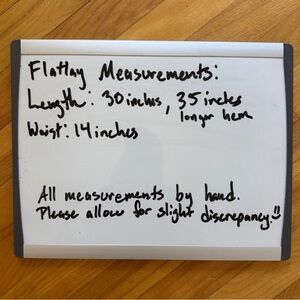 Flatlay Measurements:
Length: 30 inches, 35 inches
longer hem
Waist: 14 inches
All measurements by hand.
Please allow for slight discrepancy!!